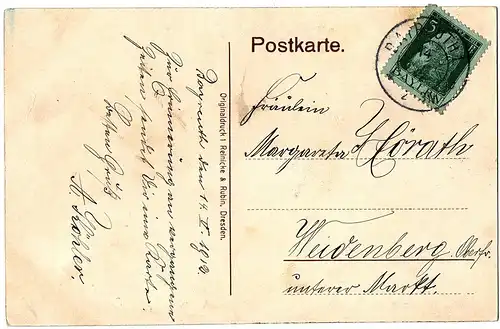 Postkarte.
Bayreuth den 14. II 1912.
Zur Erinnerung an vergangene
Zeiten sendet dir eine Karte
besten Gruß
A. Köhler.
Originaldruck Reinicke & Rubin, Dresden.
5
Fräulein
Margareta Höreth
Weidenberg. Oberfr.
unterer Markt.